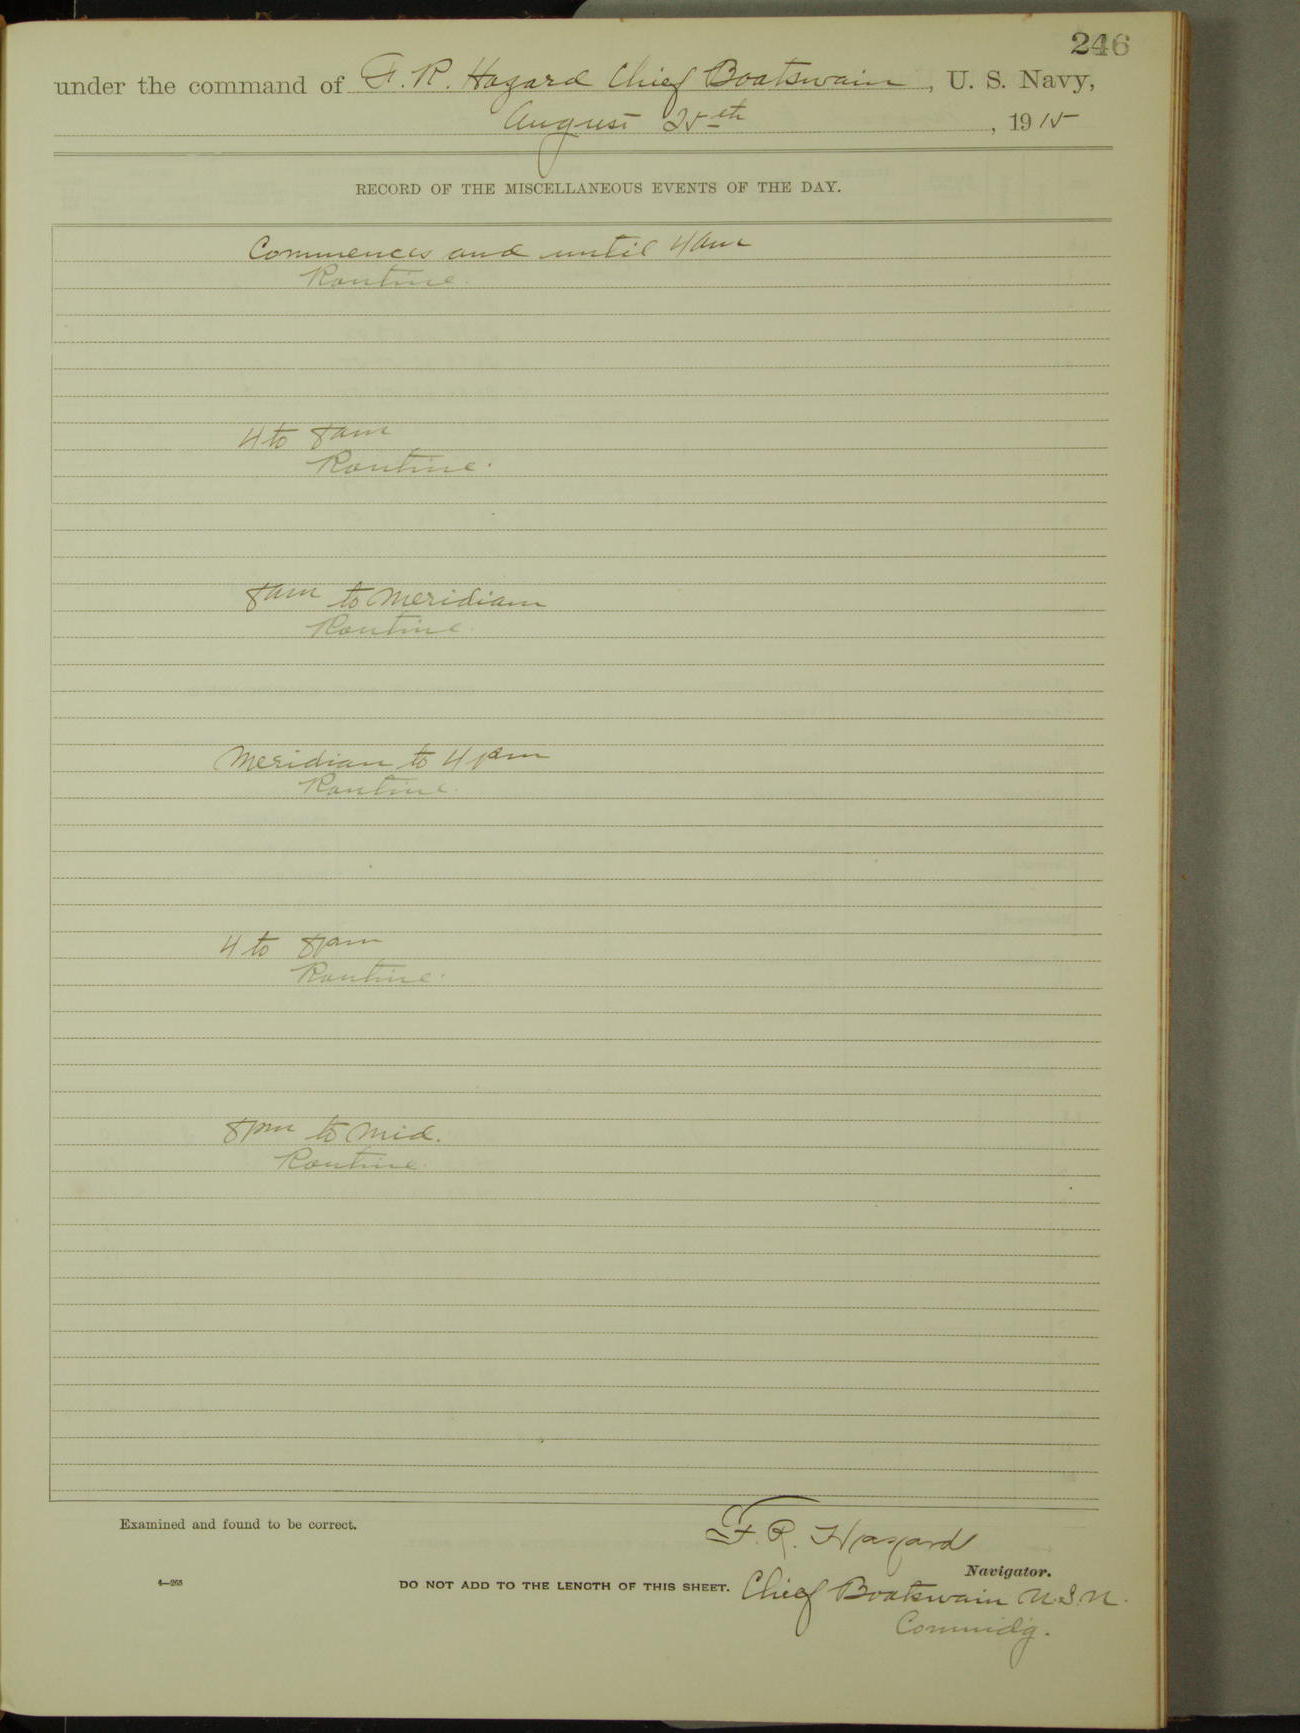 246
under the command of F. R. Hazard Chief Boatswain, U. S. Navy,
August 25th, 1915
RECORD OF THE MISCELLANEOUS EVENTS OF THE DAY.
Commences and until 4am
Routine.
4 to 8am
Routine.
8am to Meridian
Routine.
Meridian to 4 pm
Routine.
4 to 8pm
Routine.
8pm to Mid.
Routine.
Examined and found to be correct.
F. R. Hazard
Navigator.
4—265 DO NOT ADD TO THE LENGTH OF THIS SHEET. Chief Boatswain U.S.N.
Commid'g.